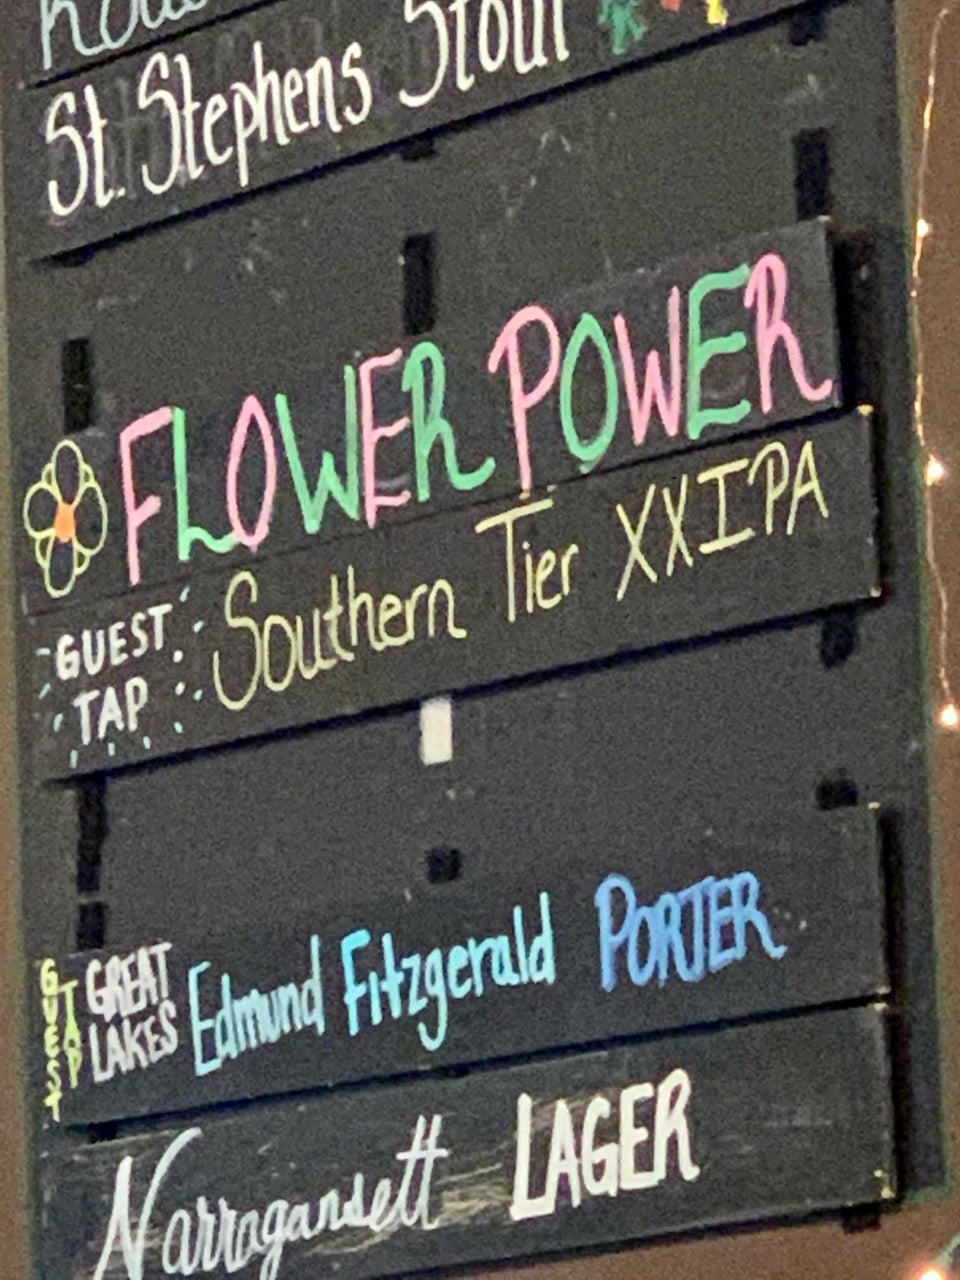 St. Stephens Stout
FLOWER POWER
GUEST TAP Southern Tier XXIPA
GUEST TAP GREAT LAKES Edmund Fitzgerald PORTER
Narragansett LAGER